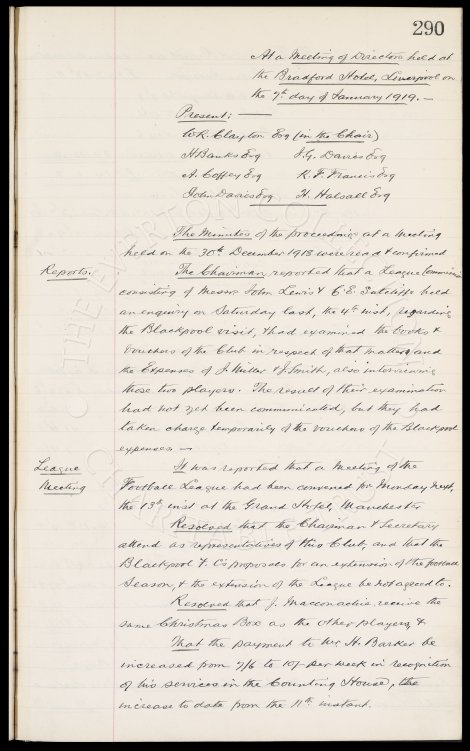 290
At a Meeting of Directors held at
the Bradford Hotel, Liverpool on
the 7th day of January 1919. —
Present: —
W.R. Clayton Esq (in the Chair)
H Banks Esq J.G. Davies Esq
A. Coffey Esq R. F. Francis Esq
John Davies Esq H. Halsall Esq
The Minutes of the proceedings at a meeting
held on the 30th December 1918 were read & confirmed
Reports. The Chairman reported that a League Commission
consisting of Messrs John Lewis & C.E. Sutcliffe held
an enquiry on Saturday last, the 4th inst, regarding
the Blackpool visit, & had examined the books &
vouchers of the Club in respect of that matter, and
the expenses of J. Miller & J Smith, also interviewing
those two players. The result of their examination
had not yet been communicated, but they had
taken charge temporarily of the vouchers of the Blackpool
expenses —
League It was reported that a Meeting of the
Meeting Football League had been convened for Monday next,
the 13th inst at the Grand Hotel, Manchester
Resolved that the Chairman & Secretary
attend as representatives of this Club, and that the
Blackpool F. Cs proposals for an extension of the football
Season, & the extension of the League be not agreed to.
Resolved that J. Macconachie receive the
same Christmas Box as the other players, &
That the payment to Mr H. Barker be
increased from 7/6 to 10/- per week in recognition
of his services in the Counting House, the
increase to date from the 11th instant.
THE EVERTON COLLECTION
CHARITABLE TRUST